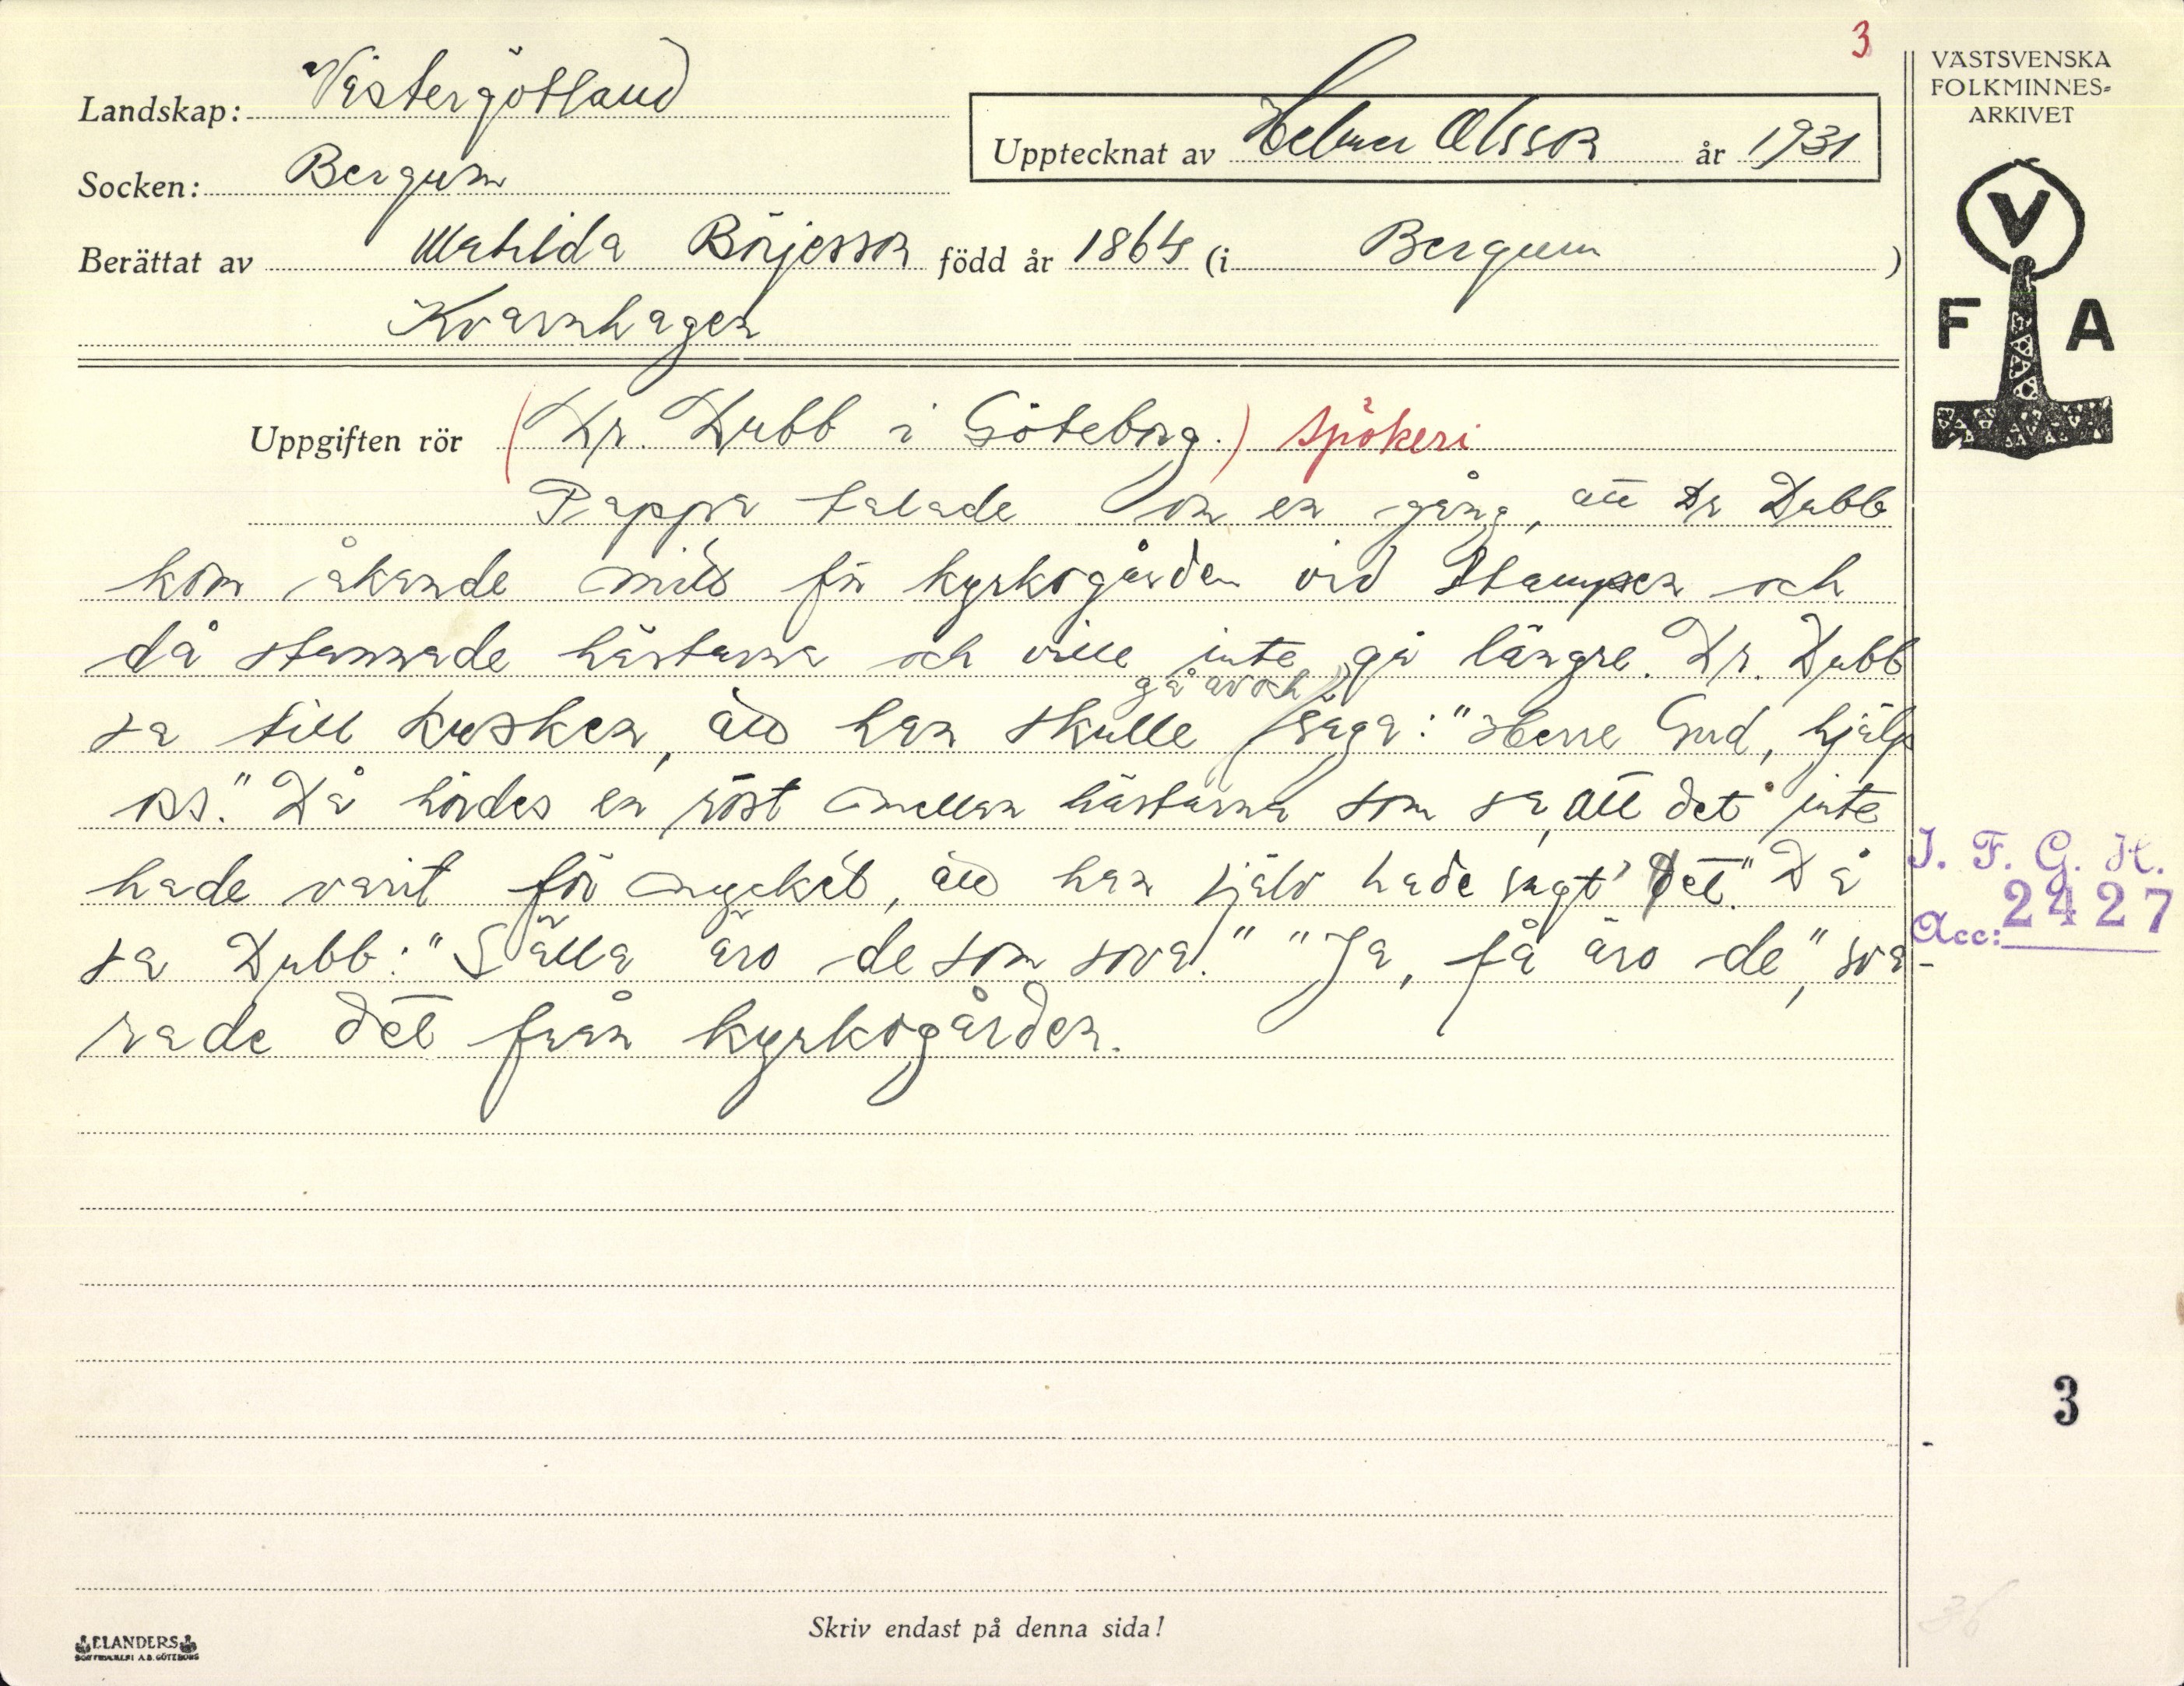 3
VÄSTSVENSKA
FOLKMINNES=
ARKIVET
Landskap: Västergötland
Upptecknat av Helmer Olsson år 1931
Socken: Bergum
Berättat av Matilda Börjesson född år 1864 (i Bergum)
Kvarnhagen
V
F A
Uppgiften rör (Dr. Dubb i Göteborg.) spökeri
Pappa talade om en gång, att Dr Dubb
kom åkande mitt för kyrkogården vid Stampen och
då stannade hästarna och ville inte gå längre. Dr. Dubb
gå av och
sa till kusken, att han skulle säga: "Herre Gud, hjälp
oss." Då hördes en röst mellan hästarna som sa, att det inte
hade varit för mycket, att han själv hade sagt det." Då
sa Dubb: "Sälla äro de som sova." "Ja, få äro de", sva-
rade det från kyrkogården.
I. F. G. H.
Acc: 2427
3
36
Skriv endast på denna sida!
ELANDERS
BOKTRYCKERI A.B. GÖTEBORG